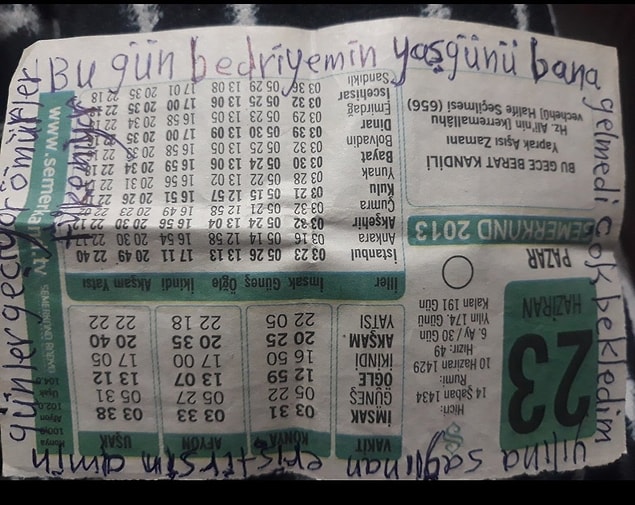 Bu gün bedriyemin yaşgünü bana
gelmedi çok bekledim
yılına sağlınan eriştirsin amin
günler geçiyor ömürler
tükeniyor
23
HAZİRAN
PAZAR
SEMERKAND 2013
Hicri:
14 Şaban 1434
Rumi:
10 Haziran 1429
Hızır: 49
6. Ay / 30 Gün
Yılın 174. Günü
Kalan 191 Gün
BU GECE BERAT KANDİLİ
Yaprak Aşısı Zamanı
Hz. Ali'nin (kerremallâhu
vechehû) Halife Seçilmesi (656)
VAKİT KONYA AFYON UŞAK
İMSAK 03 31 03 33 03 38
GÜNEŞ 05 22 05 27 05 31
ÖĞLE 12 59 13 07 13 12
İKİNDİ 16 50 17 00 17 05
AKŞAM 20 25 20 35 20 40
YATSI 22 05 22 18 22 22
İller İmsak Güneş Öğle İkindi Akşam Yatsı
İstanbul 03 23 05 26 13 13 17 11 20 49 22 40
Ankara 03 16 05 14 12 58 16 54 20 30 22 17
Akşehir 03 32 05 24 13 04 16 56 20 30 22 12
Çumra 03 32 05 21 12 58 16 49 20 23
Kulu 03 21 05 15 12 57 16 51 20 26
Yunak 03 28 05 22 13 02 16 56
Bayat 03 30 05 24 13 06 16 59 20 34
Bolvadin 03 32 05 26 13 05 16 58
Dinar 03 39 05 30 13 09 17 00 20 35
Emirdağ 03 29 05 23 13 05 16 58 20 34
İscehisar 03 32 05 26 13 06 17 00 20 35
Sandıklı 03 36 05 29 13 08 17 01 20 35 22 18
www.semerkand.tv